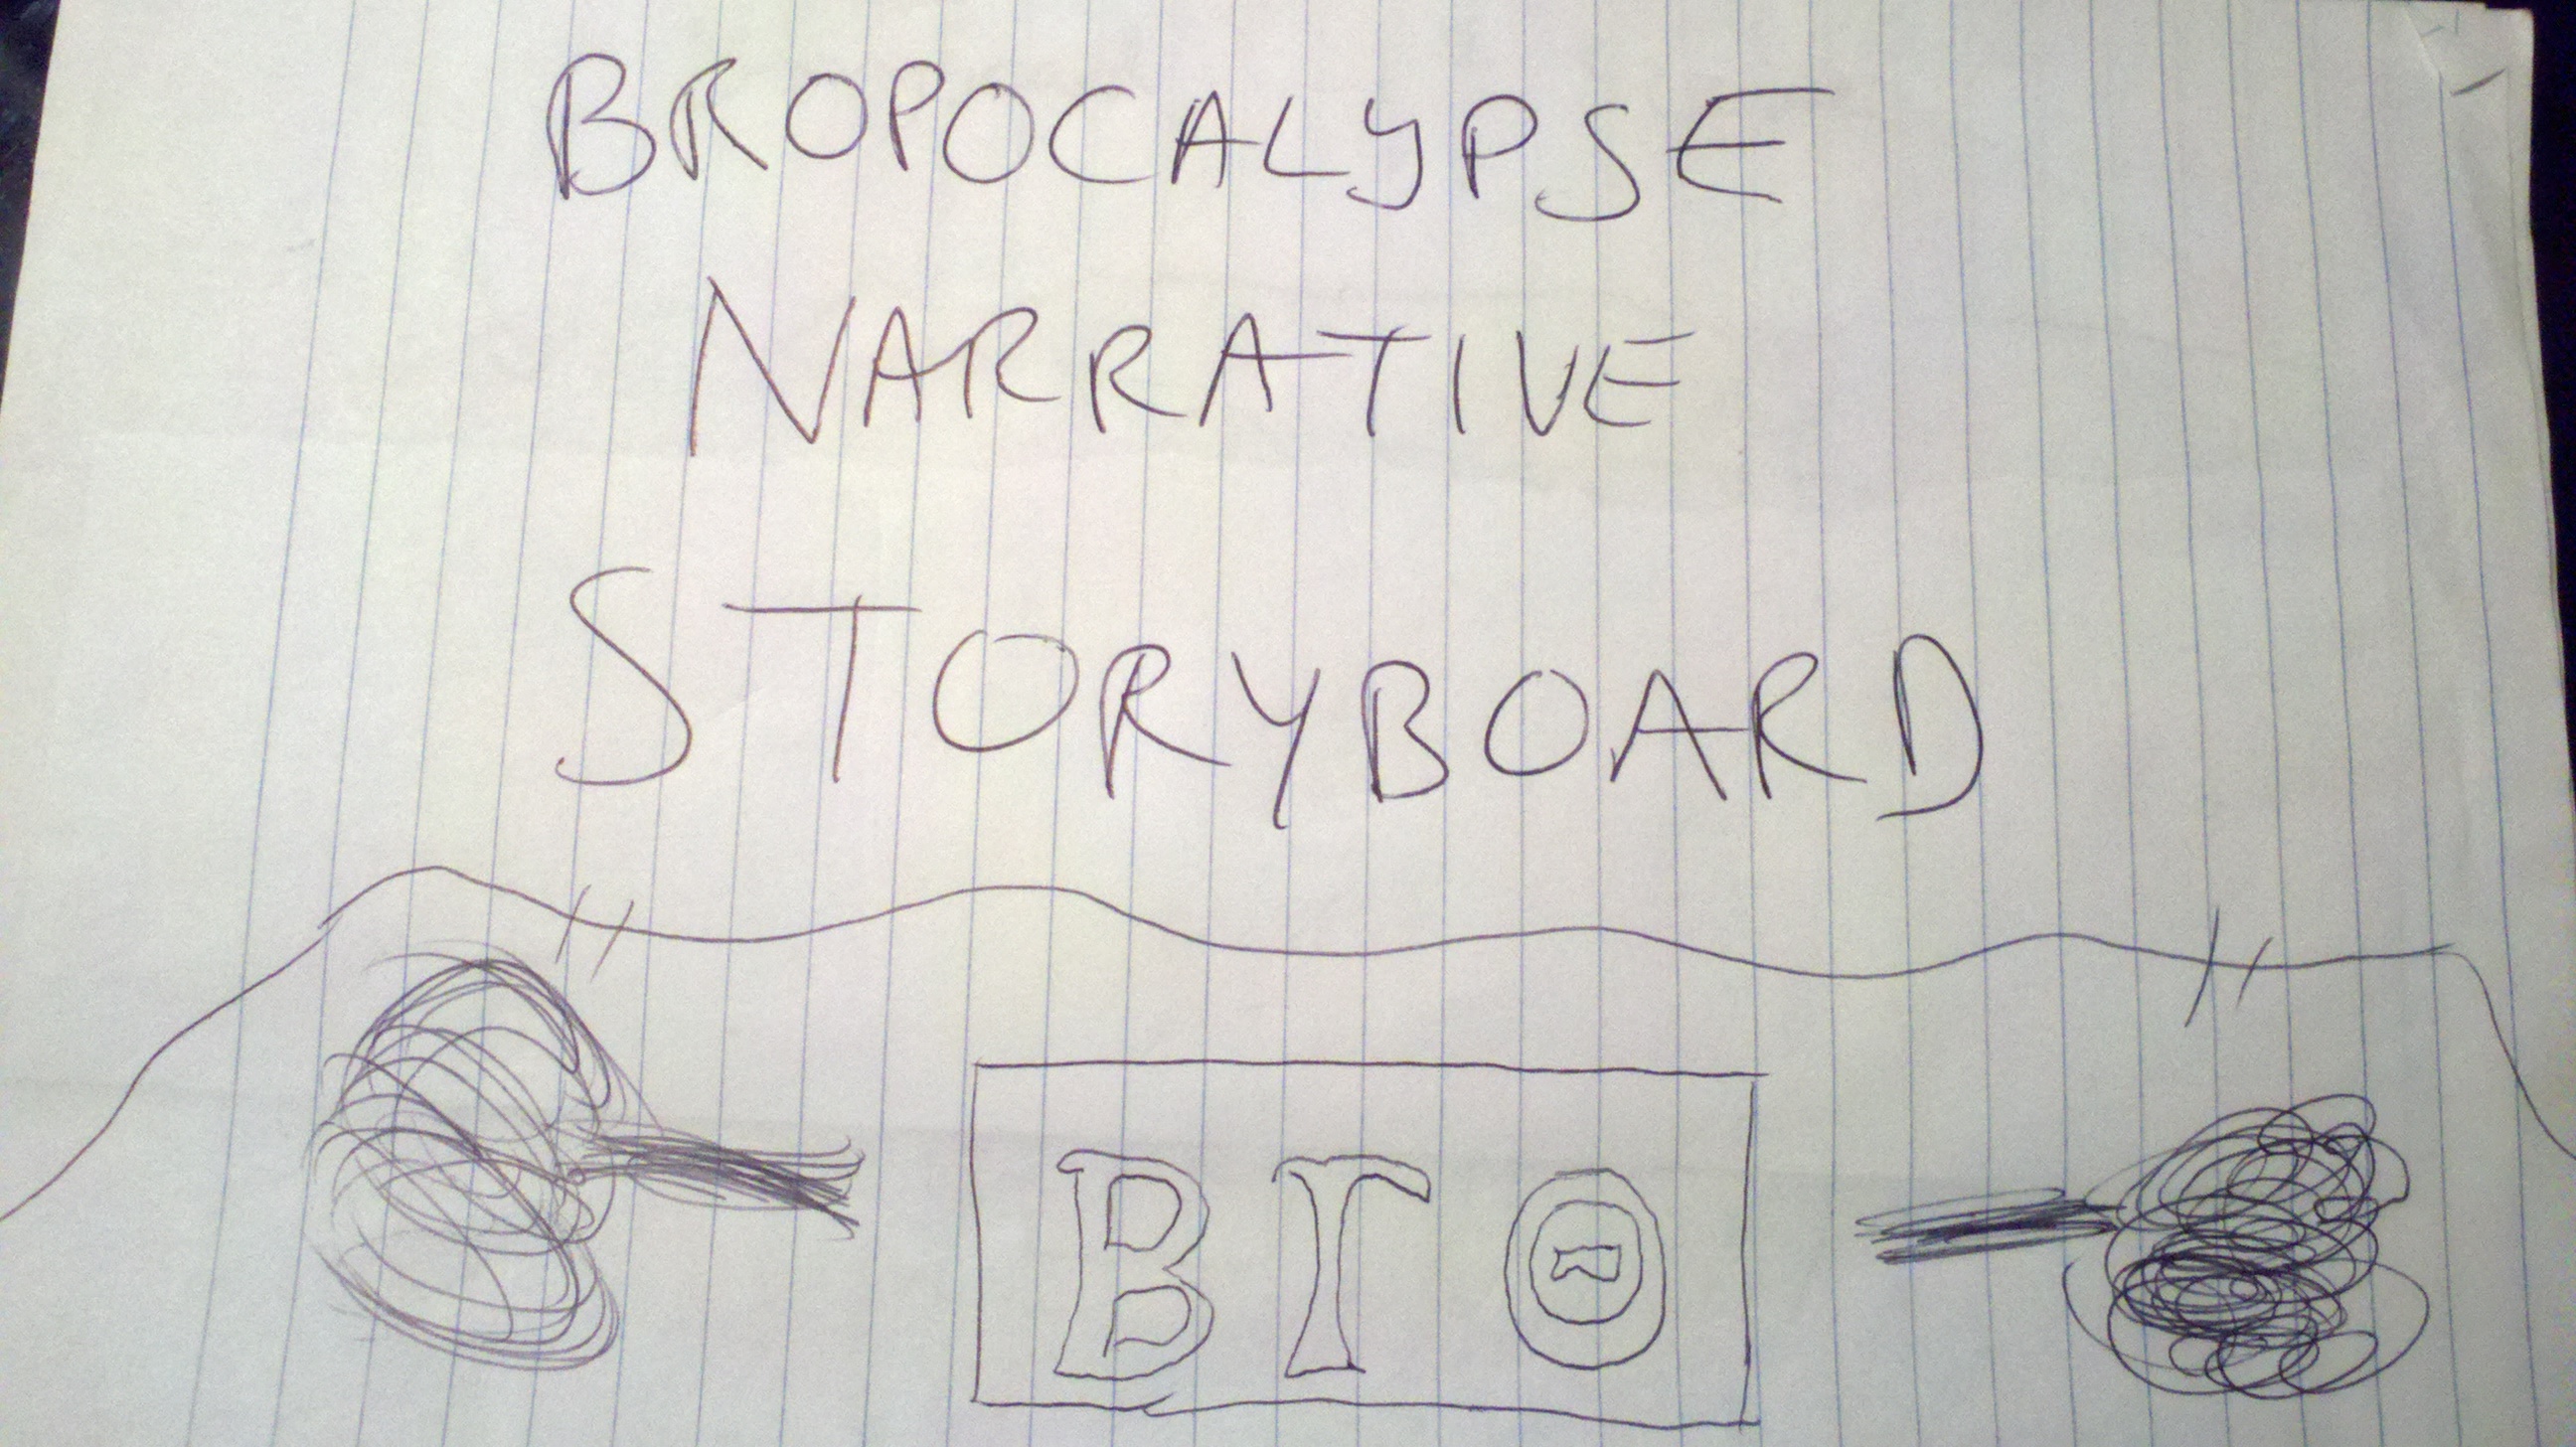 BROPOCALYPSE
NARRATIVE
STORYBOARD
ΒΓΘ